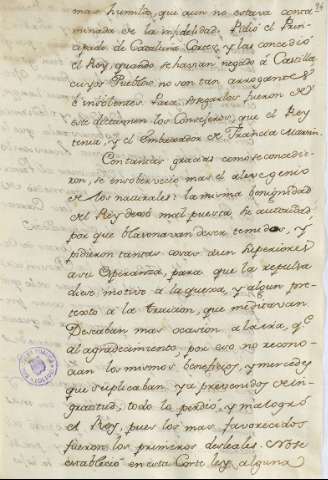 mas humilde, que aun no estava conta
minada de la infidelidad. Pidió el Prin
cipado de Cataluña Cortes, y las concedió
el Rey, quando se havian negado á Castilla,
cuyos Pueblos no son tan arrogantes
é insolentes. Para negarlas fueron de
este dictamen los Consejeros, que el Rey
tenia, y el Embaxador de Francia Marsin.
Con tantas gracias como se concedie
ron, se ensobervecio mas el aleve genio
de los naturales: la misma benignidad
del Rey dexó mal puesta su autoridad
por que blasonavan de ser temidos, y
pidieron tantas cosas aun superiores
a su Esperanza, para que la repulsa
diese motivo a la quexa, y algun pre
texto a la traicion, que meditavan.
Deseaban mas ocasion a la ira, q.e
al agradecimiento, por eso no recono
cian los mismos beneficios, y mercedes
que suplicaban, y a prevenidos de in
gratitud, todo lo perdió, y malogró
el Rey, pues los mas favorecidos
fueron los primeros desleales. No se
estableció en esta Corte ley alguna